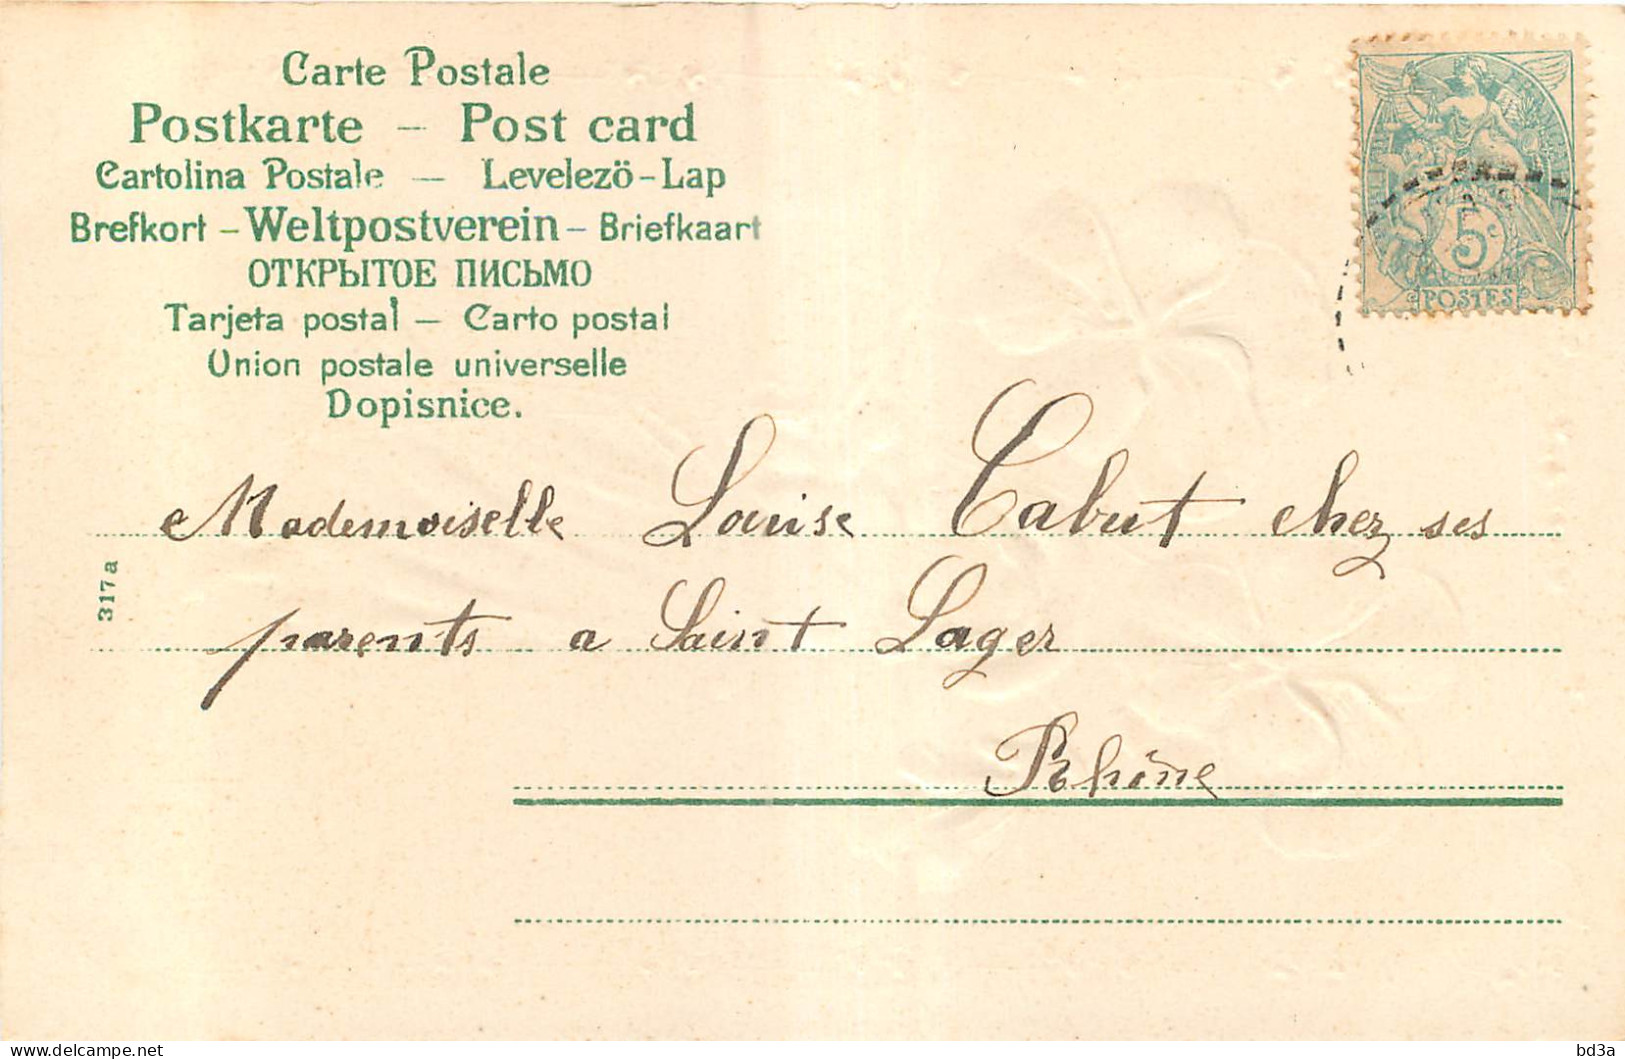 Carte Postale
Postkarte – Post card
Cartolina Postale – Levelezö-Lap
Brefkort – Weltpostverein – Briefkaart
ОТКРЫТОЕ ПИСЬМО
Tarjeta postal – Carto postal
Union postale universelle
Dopisnice.
5c
POSTES
Mademoiselle Louise Cabut chez ses
parents a Saint Lager
Rhône
317a
bd3a